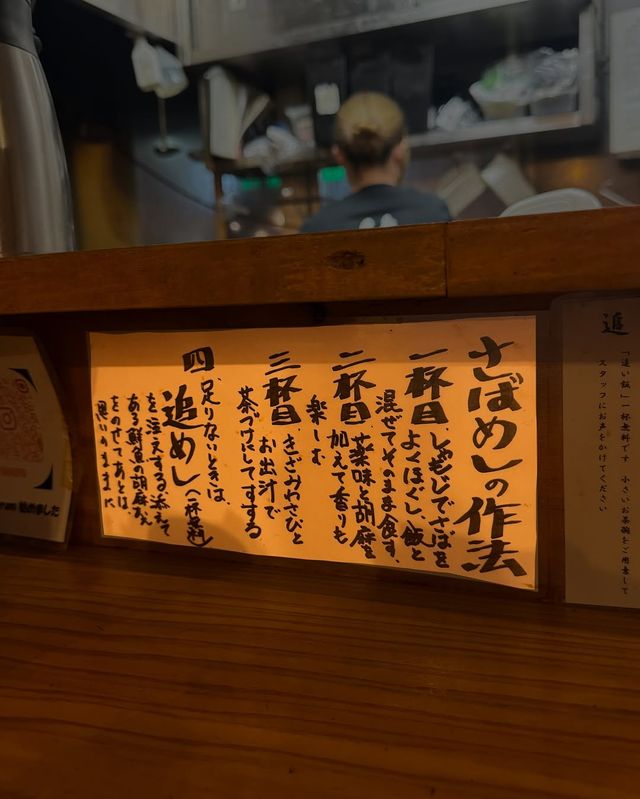 さばめしの作法
一杯目 しゃもじでさばを
よくほぐし、飯と
混ぜてそのまま食す。
二杯目 薬味と胡麻を
加えて香りも
楽しむ
三杯目 きざみわさびと
お出汁で
茶づけにしてすする
四 足りないときは、
追めし(一杯無料)
を注文する。添えて
ある鮮魚の胡麻和え
をのせてあとは、
思いのままに
追
「追い飯」一杯無料です 小さいお茶碗をご用意して
スタッフにお声をかけてください
ram 始めました